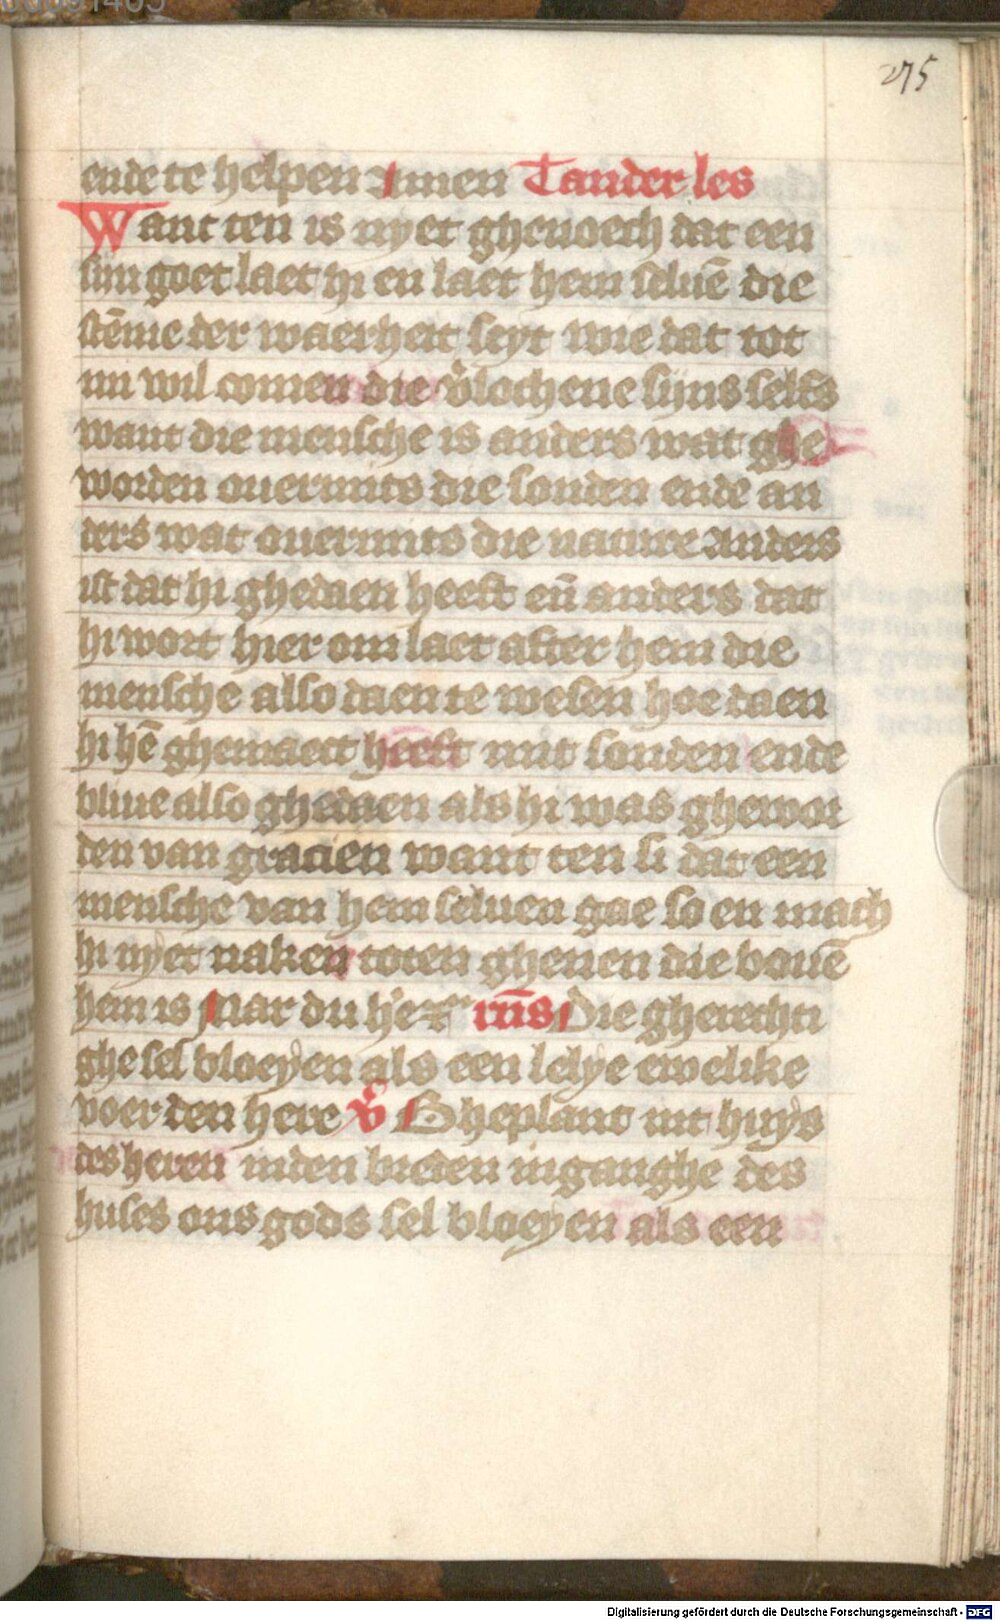 275
ende te helpen Amen Tander les
Want ten is nyet ghenoech dat een
sijn goet laet hi en laet hem seluē die
stēme der waerheit seyt wie dat tot
mi wil comen die v̄lochene sijns selfs
want die mensche is anders wat ghe
worden ouermits die sonden ende an
ders wat ouermits die nature Anders
ist dat hi ghedaen heeft en̄ anders dat
hi wort hier om laet after hem die
mensche also daen te wesen hoe daen
hi hē ghemaect heeft mit sonden ende
bliue also ghedaen als hi was ghewor
den van gracien want ten si dat een
mensche van hem seluen gae so en mach
hi nyet naken toten ghenen die bouē
hem is Mar du he rn̄s Die gherechti
ghe sel bloeyen als een lelye ewelike
voer den here v̄ Gheplant int huys
des heren inden bueten inganghe des
huses ons gods sel bloeyen als een
Digitalisierung gefördert durch die Deutsche Forschungsgemeinschaft - DFG